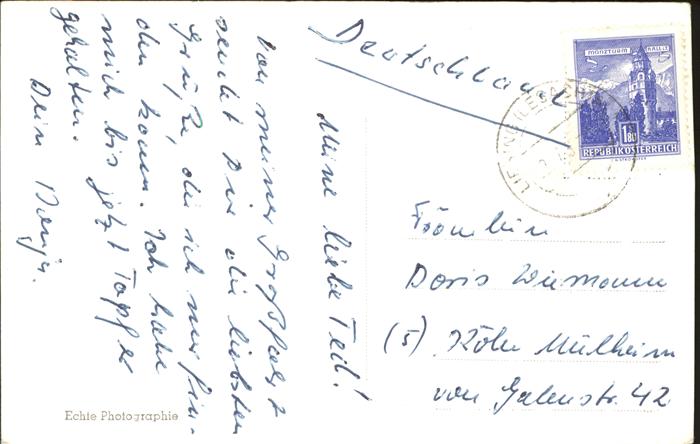 Deutschland
MÜNZTURM HALL I. T.
1.80
REPUBLIK ÖSTERREICH
Meine liebe Tedi!
Von meiner Großfahrt
sendet Dir die liebsten
Grüße, die ich nur fin-
den kann. Ich habe
mich bis jetzt Tapfer
gehalten.
Dein
Fräulein
Doris Wiemann
(5) Köln Mülheim
von Galenstr. 42
Echte Photographie